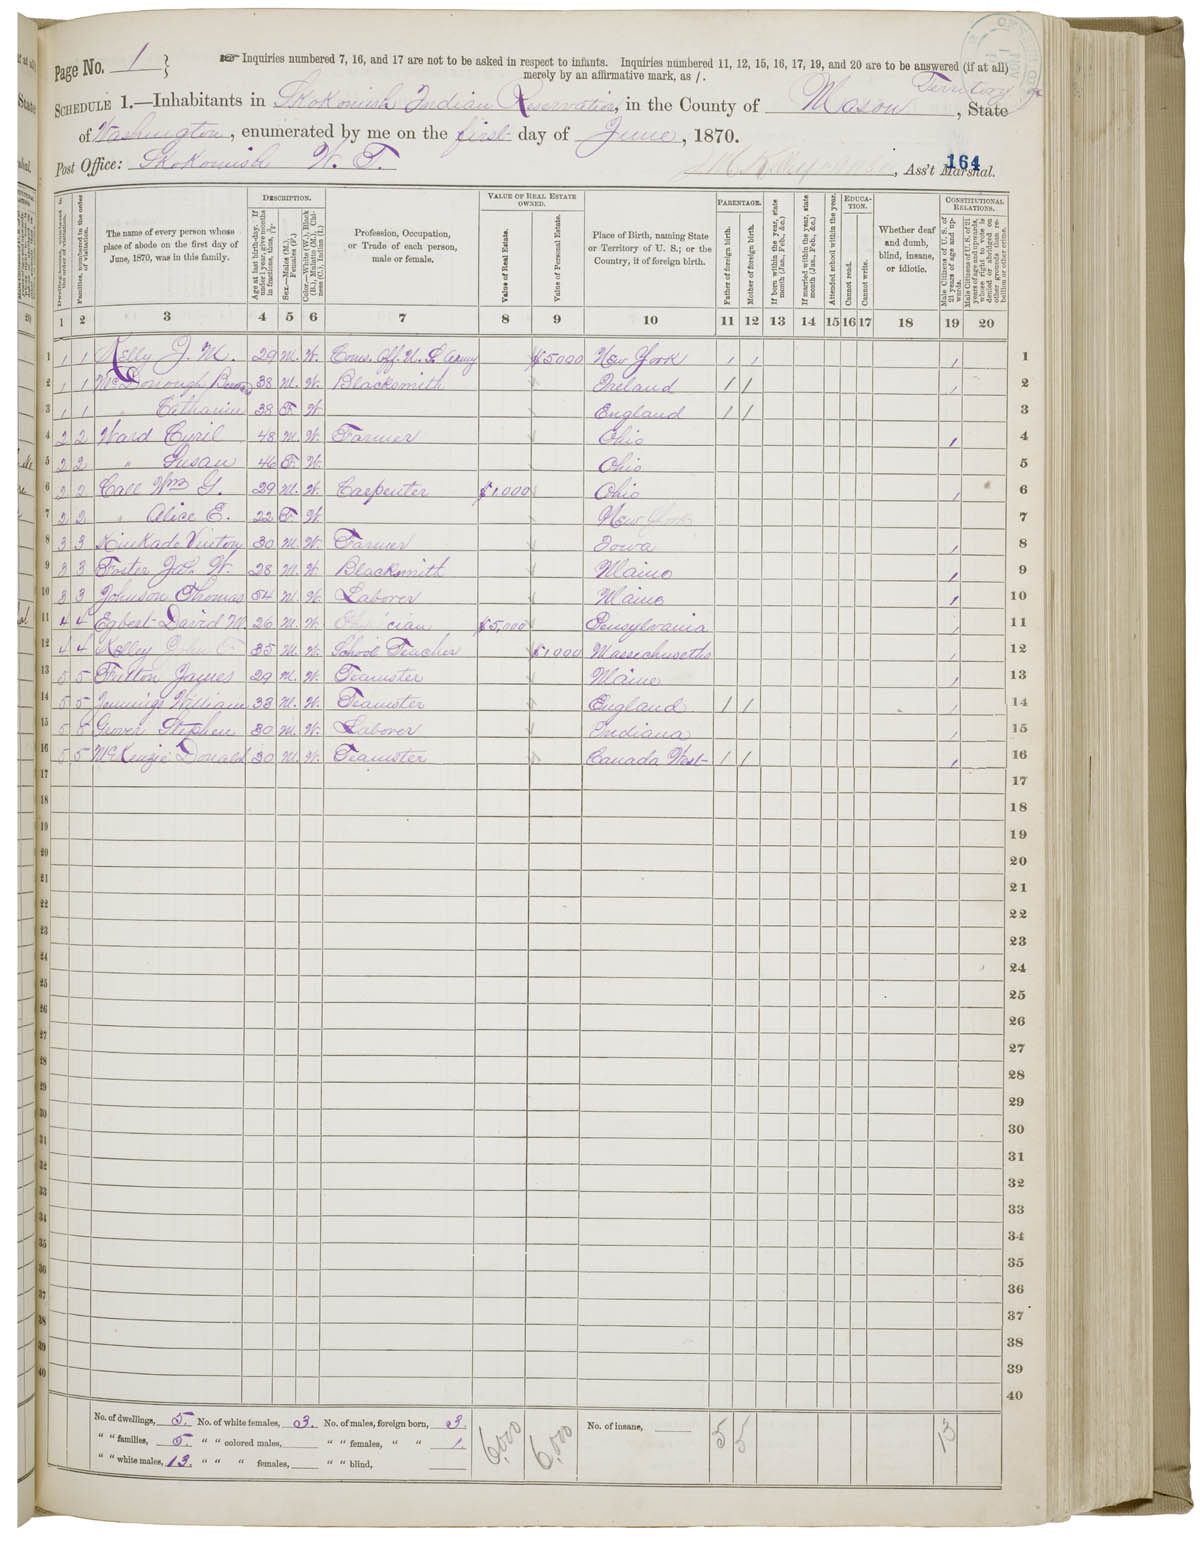 Page No. 1
☞ Inquiries numbered 7, 16, and 17 are not to be asked in respect to infants. Inquiries numbered 11, 12, 15, 16, 17, 19, and 20 are to be answered (if at all)
merely by an affirmative mark, as /.
Territory
SCHEDULE 1.—Inhabitants in Skokomish Indian Reservation, in the County of Mason, State
of Washington, enumerated by me on the first day of June, 1870.
Post Office: Skokomish W. T. , Ass't Marshal.
164
DESCRIPTION. VALUE OF REAL ESTATE OWNED. PARENTAGE. EDUCATION. CONSTITUTIONAL RELATIONS.
Dwelling-houses, numbered in the order of visitation.
Families, numbered in the order of visitation.
The name of every person whose place of abode on the first day of June, 1870, was in this family.
Age at last birth-day. If under 1 year, give months in fractions, thus, 3/12
Sex.—Males (M.), Females (F.)
Color.—White (W.), Black (B.), Mulatto (M.), Chinese (C.), Indian (I.)
Profession, Occupation, or Trade of each person, male or female.
Value of Real Estate.
Value of Personal Estate.
Place of Birth, naming State or Territory of U. S.; or the Country, if of foreign birth.
Father of foreign birth.
Mother of foreign birth.
If born within the year, state month (Jan., Feb., &c.)
If married within the year, state month (Jan., Feb., &c.)
Attended school within the year.
Cannot read.
Cannot write.
Whether deaf and dumb, blind, insane, or idiotic.
Male Citizens of U. S. of 21 years of age and upwards.
Male Citizens of U. S. of 21 years of age and upwards, whose right to vote is denied or abridged on other grounds than rebellion or other crime.
1 2 3 4 5 6 7 8 9 10 11 12 13 14 15 16 17 18 19 20
1 1 1 Kelly J. M. 29 M. W. Coms. Off. U. S. Army $5000 New York / / / 1
2 1 1 McDonough 38 M. W. Blacksmith Ireland / / / 2
3 1 1 " Catharine 38 F. W. England / / 3
4 2 2 Ward Cyril 48 M. W. Farmer Ohio / 4
5 2 2 " Susan 46 F. W. Ohio 5
6 2 2 Call Wm G. 29 M. W. Carpenter $1,000 Ohio / 6
7 2 2 " Alice E. 22 F. W. New York 7
8 3 3 Kinkade Vinton 30 M. W. Farmer Iowa / 8
9 3 3 Foster W. 28 M. W. Blacksmith Maine / 9
10 3 3 Johnson Thomas 54 M. W. Laborer Maine / 10
11 4 4 Egbert David M. 26 M. W. Physician $5,000 Pensylvania / 11
12 4 4 Kelley 35 M. W. School Teacher $1000 Massechuseths / 12
13 5 5 Fulton James 29 M. W. Teamster Maine / 13
14 5 5 Jennings William 33 M. W. Teamster England / / / 14
15 5 5 Grover Stephen 30 M. W. Laborer Indiana / 15
16 5 5 McKenzie Donald 30 M. W. Teamster Canada West / / / 16
17 17
18 18
19 19
20 20
21 21
22 22
23 23
24 24
25 25
26 26
27 27
28 28
29 29
30 30
31 31
32 32
33 33
34 34
35 35
36 36
37 37
38 38
39 39
40 40
No. of dwellings, 5. No. of white females, 3. No. of males, foreign born, 3. 6,000 6,000 No. of insane, 5 5 13
" " families, 5. " " colored males, " " females, " " 1.
" " white males, 13. " " " females, " " blind,